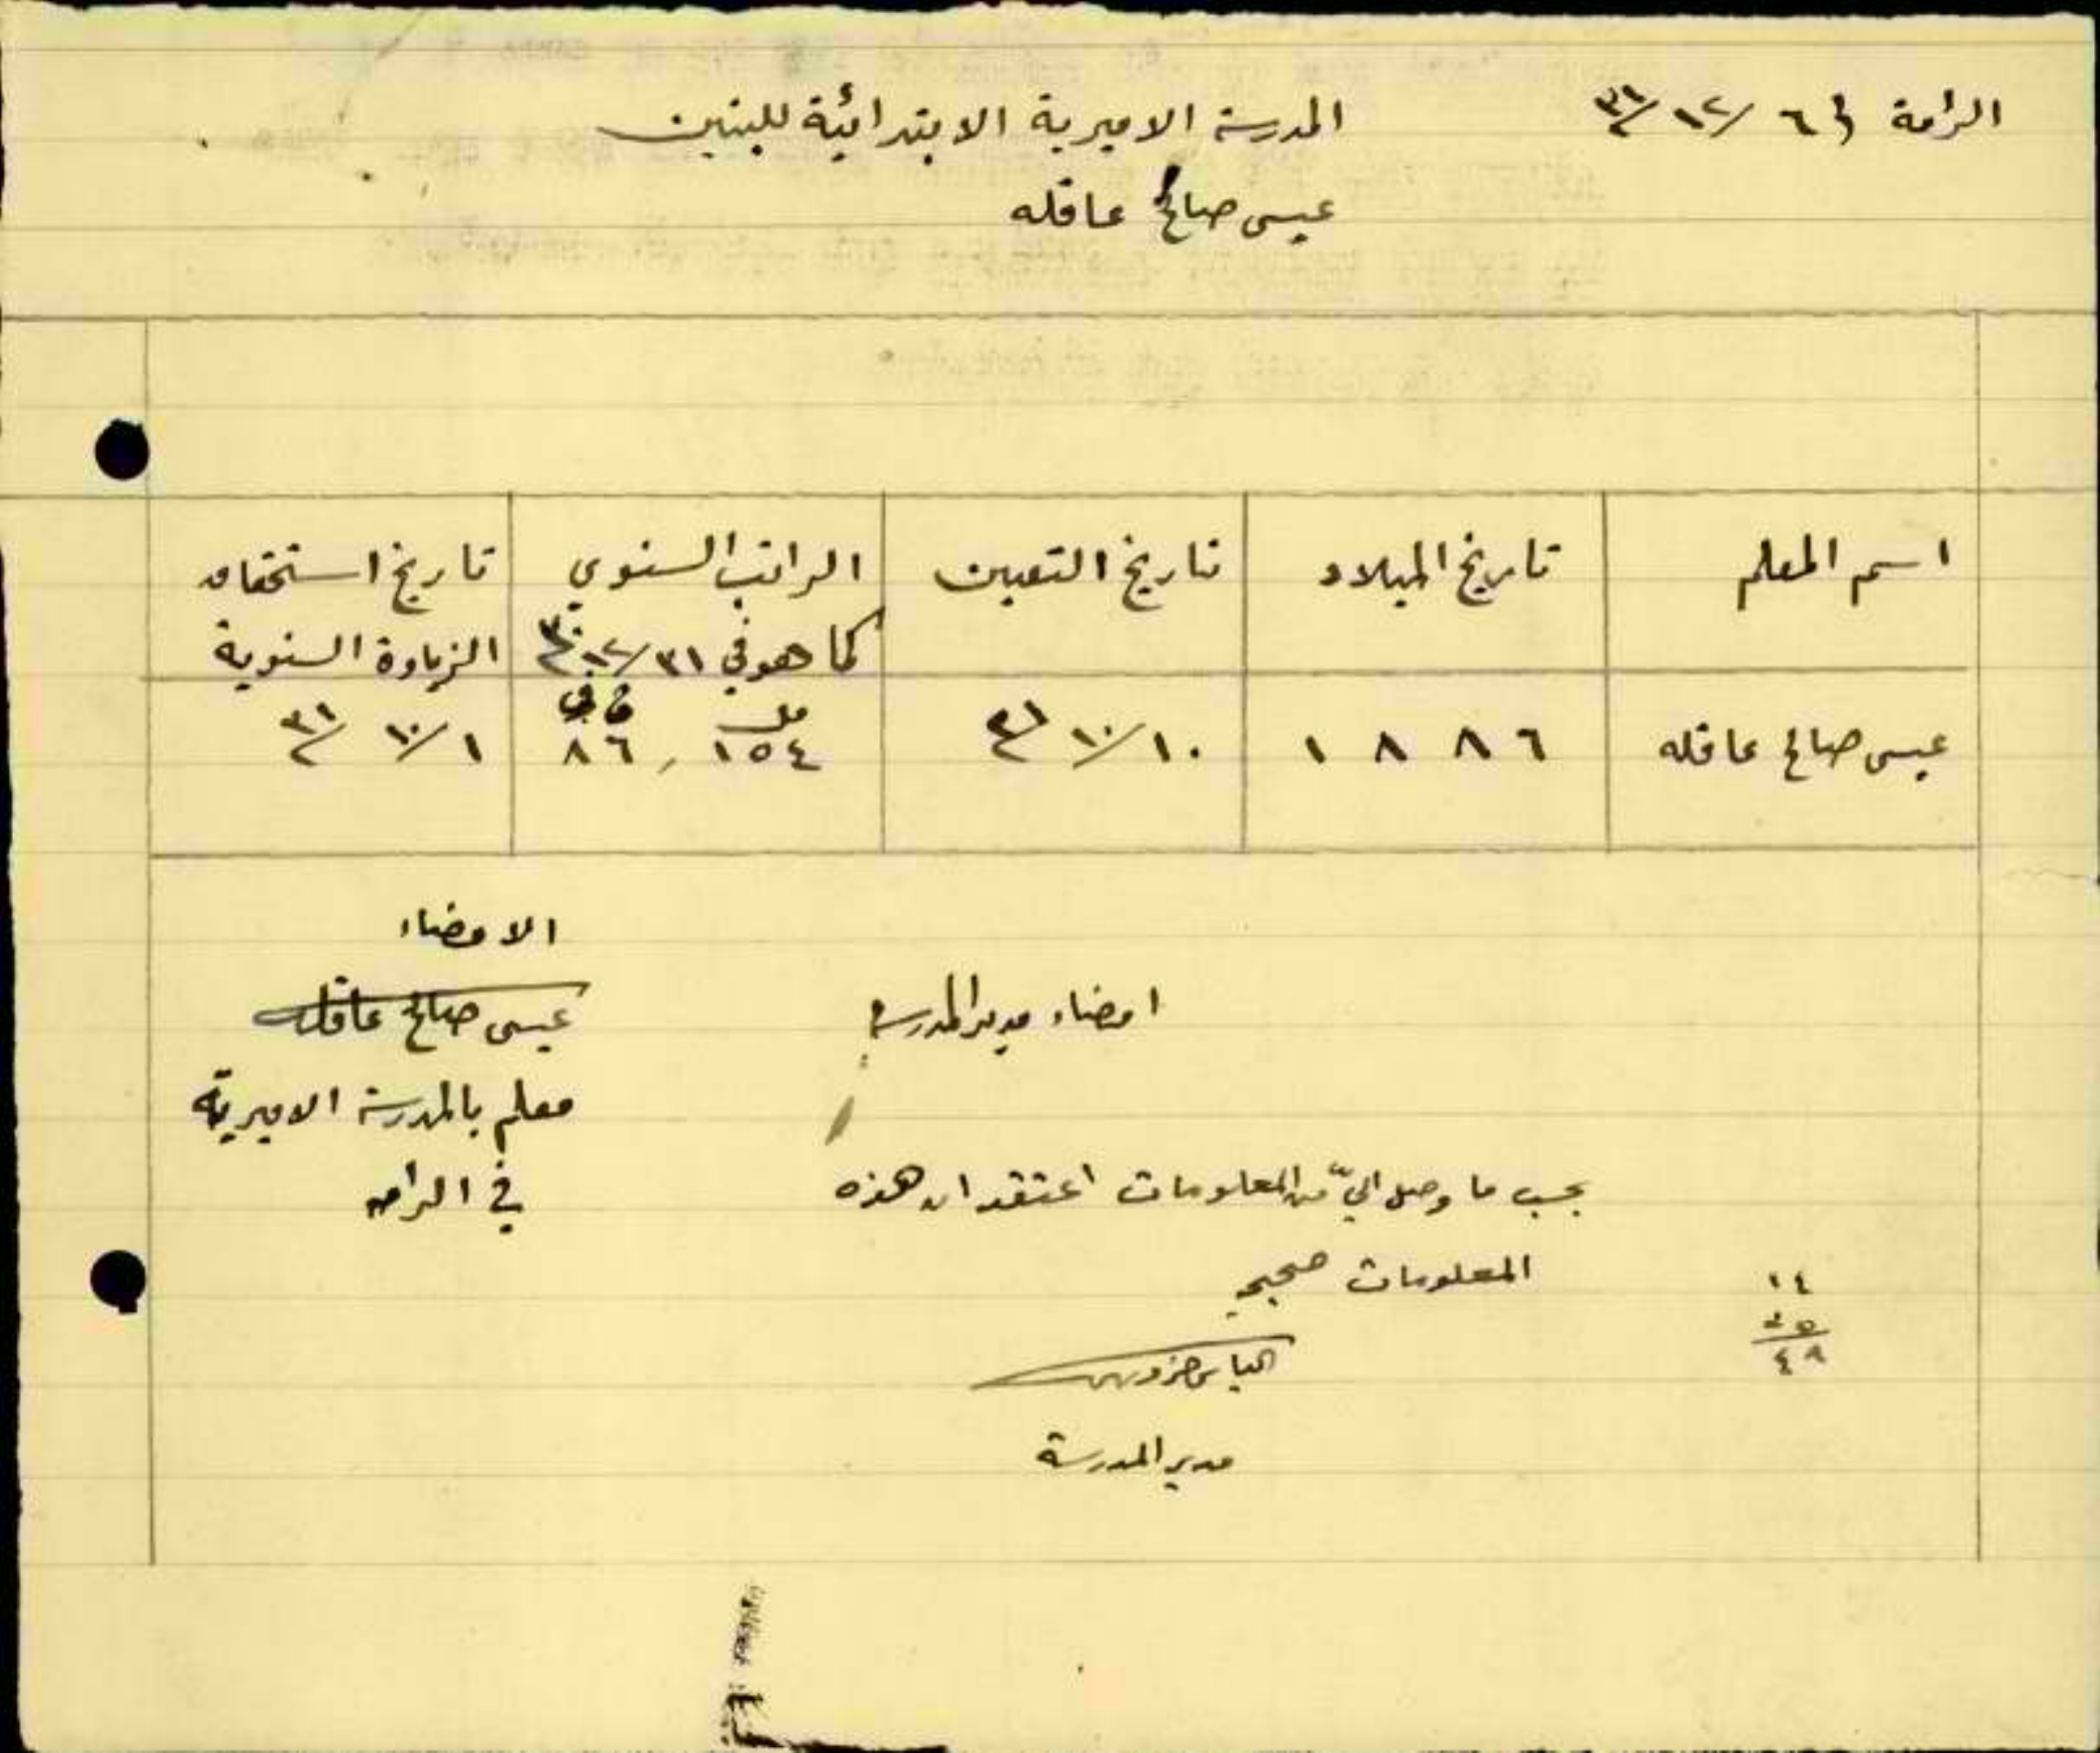 الرامة في ٦ /١٢/ ٣١
المدرسة الاميرية الابتدائية للبنين
عيسى صالح عاقله
اسم المعلم
تاريخ الميلاد
تاريخ التعيين
الراتب السنوي
كما هو في ٣١/١٢/٣٠
تاريخ استحقاق
الزيادة السنوية
عيسى صالح عاقله
١٨٨٦
١٠/١٠/
مل
١٥٤ ٨٦
١/١٠/٣١
الامضاء
عيسى صالح عاقله
معلم بالمدرسة الاميرية
في الرامه
امضاء مدير المدرسة
بحسب ما وصل اليّ من المعلومات اعتقد ان هذه
المعلومات صحيحة
الياس
مدير المدرسة
١٤